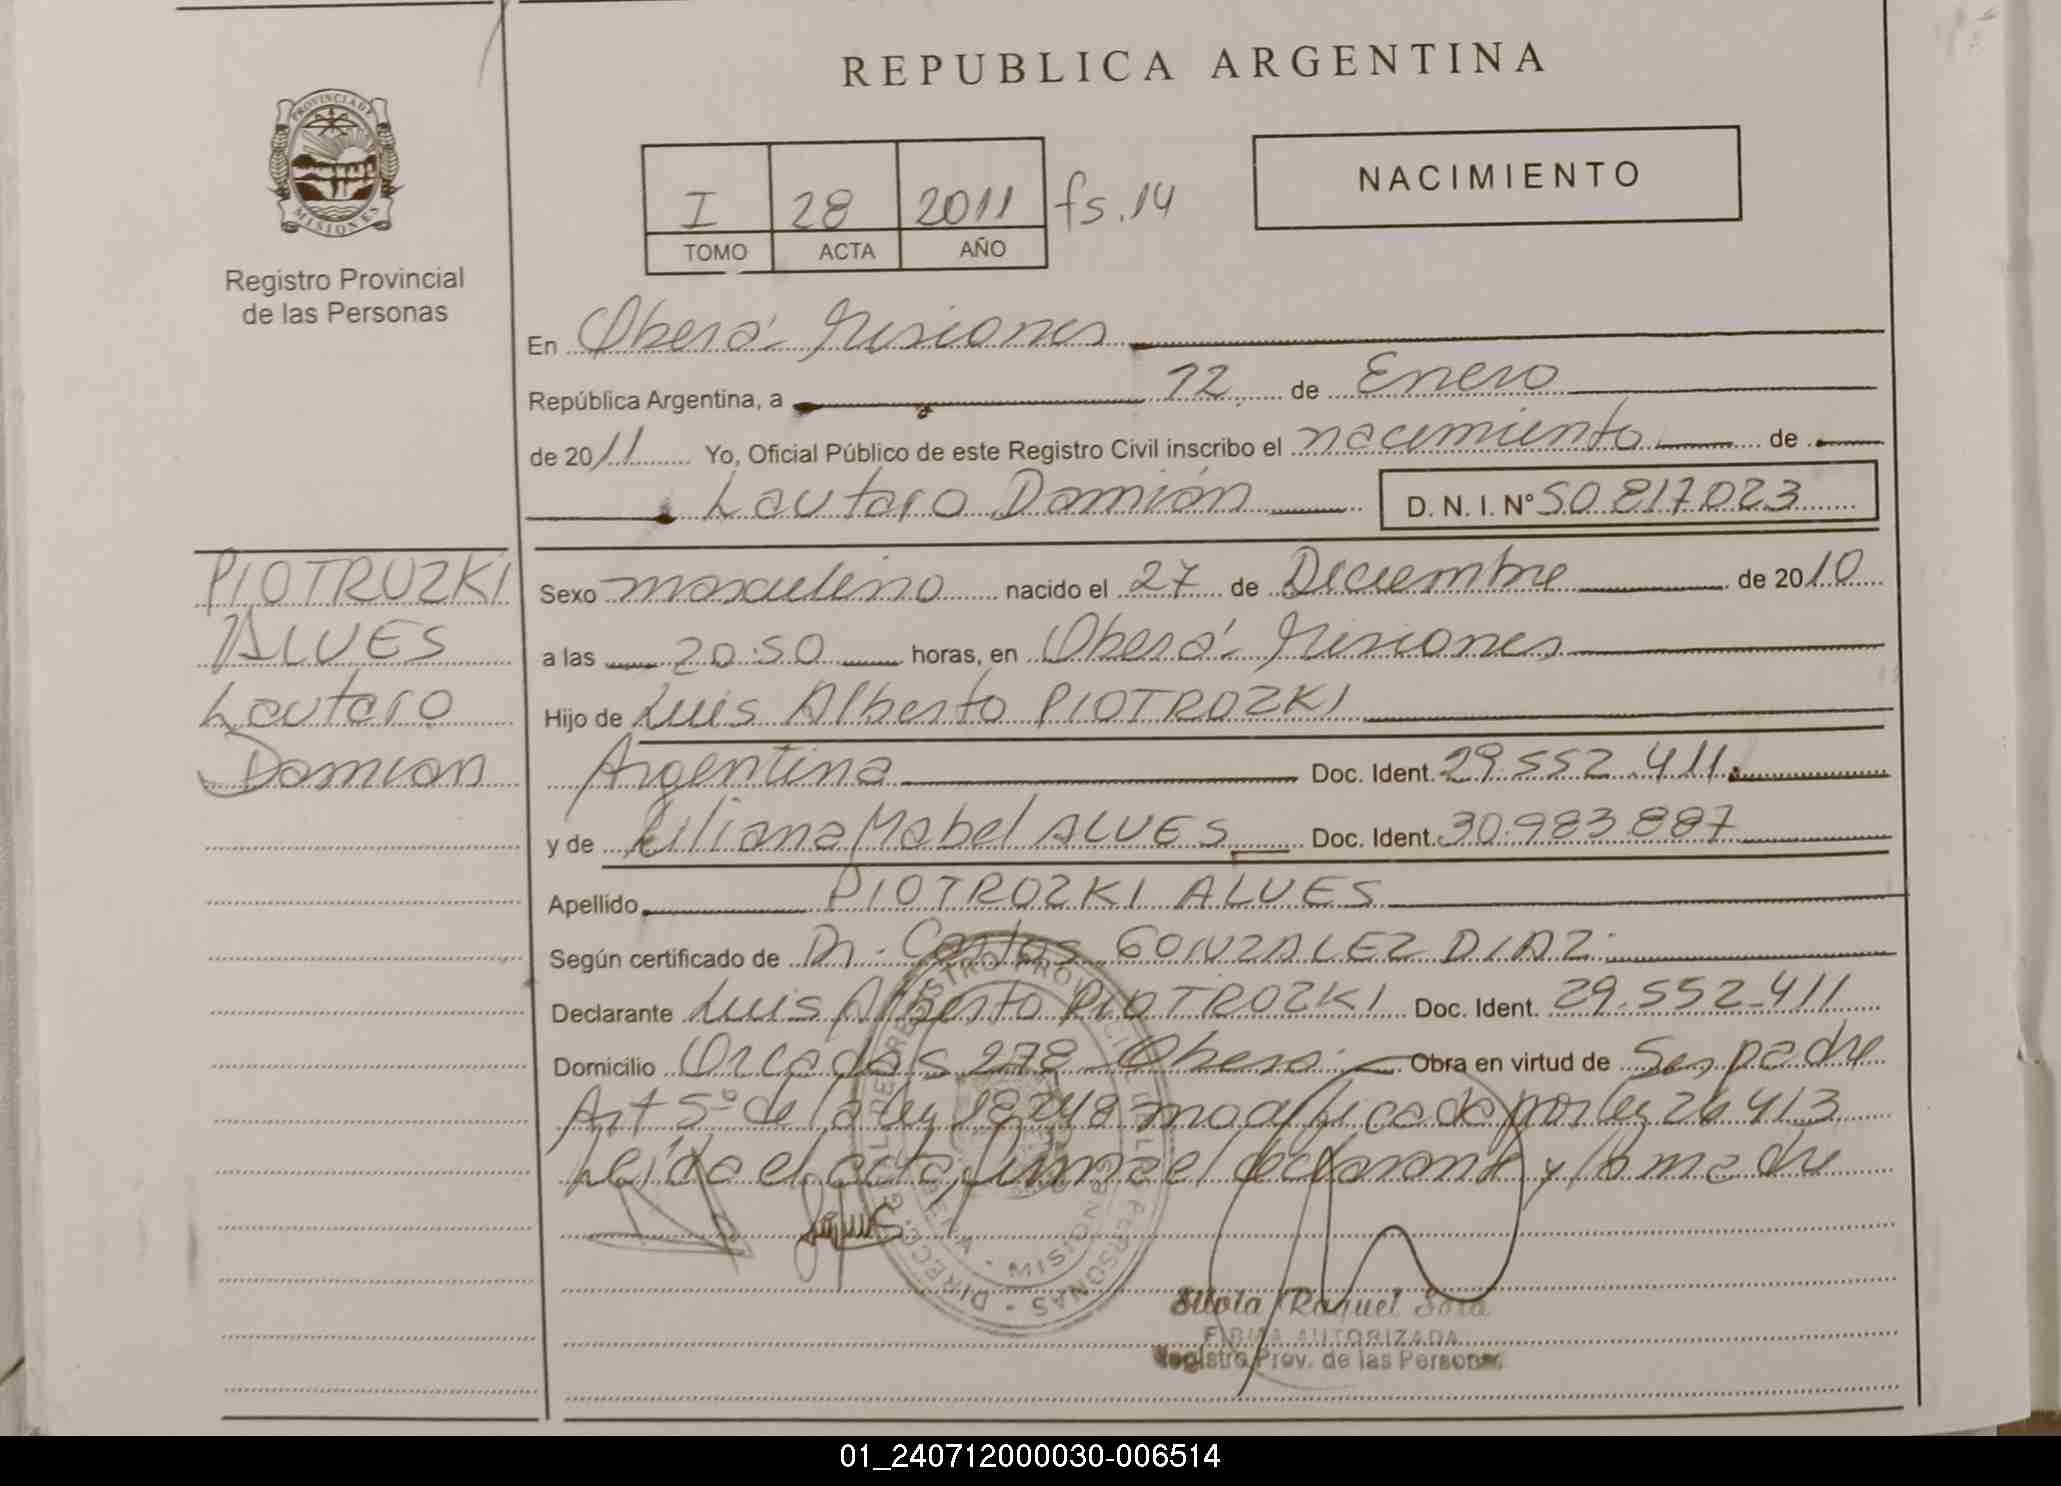 REPUBLICA ARGENTINA
PROVINCIA DE
MISIONES
Registro Provincial
de las Personas
I 28 2011 fs.14
TOMO ACTA AÑO
NACIMIENTO
En Oberá - Misiones
República Argentina, a 12 de Enero
de 2011 Yo, Oficial Público de este Registro Civil inscribo el nacimiento de
Lautaro Damián D. N. I. Nº 50 817023
PIOTRUZKI
ALVES
Lautaro
Damian
Sexo masculino nacido el 27 de Diciembre de 2010
a las 20:50 horas, en Oberá - Misiones
Hijo de Luis Alberto PIOTROZKI
Argentina Doc. Ident. 29.552.411
y de Liliana Mabel ALVES Doc. Ident. 30.983.887
Apellido PIOTROZKI ALVES
Según certificado de Dr. Carlos GONZALEZ DIAZ
Declarante Luis Alberto PIOTROZKI Doc. Ident. 29.552.411
Domicilio Orcadas 278 Oberá Obra en virtud de Ser padre
Art 5º de la ley 18248 modificada por ley 26413
Leída el acta, firma el declarante y la madre
REGISTRO PROVINCIAL DE PERSONAS - DIRECC. G
MISIONES
Silvia Raquel Sosa
FIRMA AUTORIZADA
Registro Prov. de las Personas
01_240712000030-006514